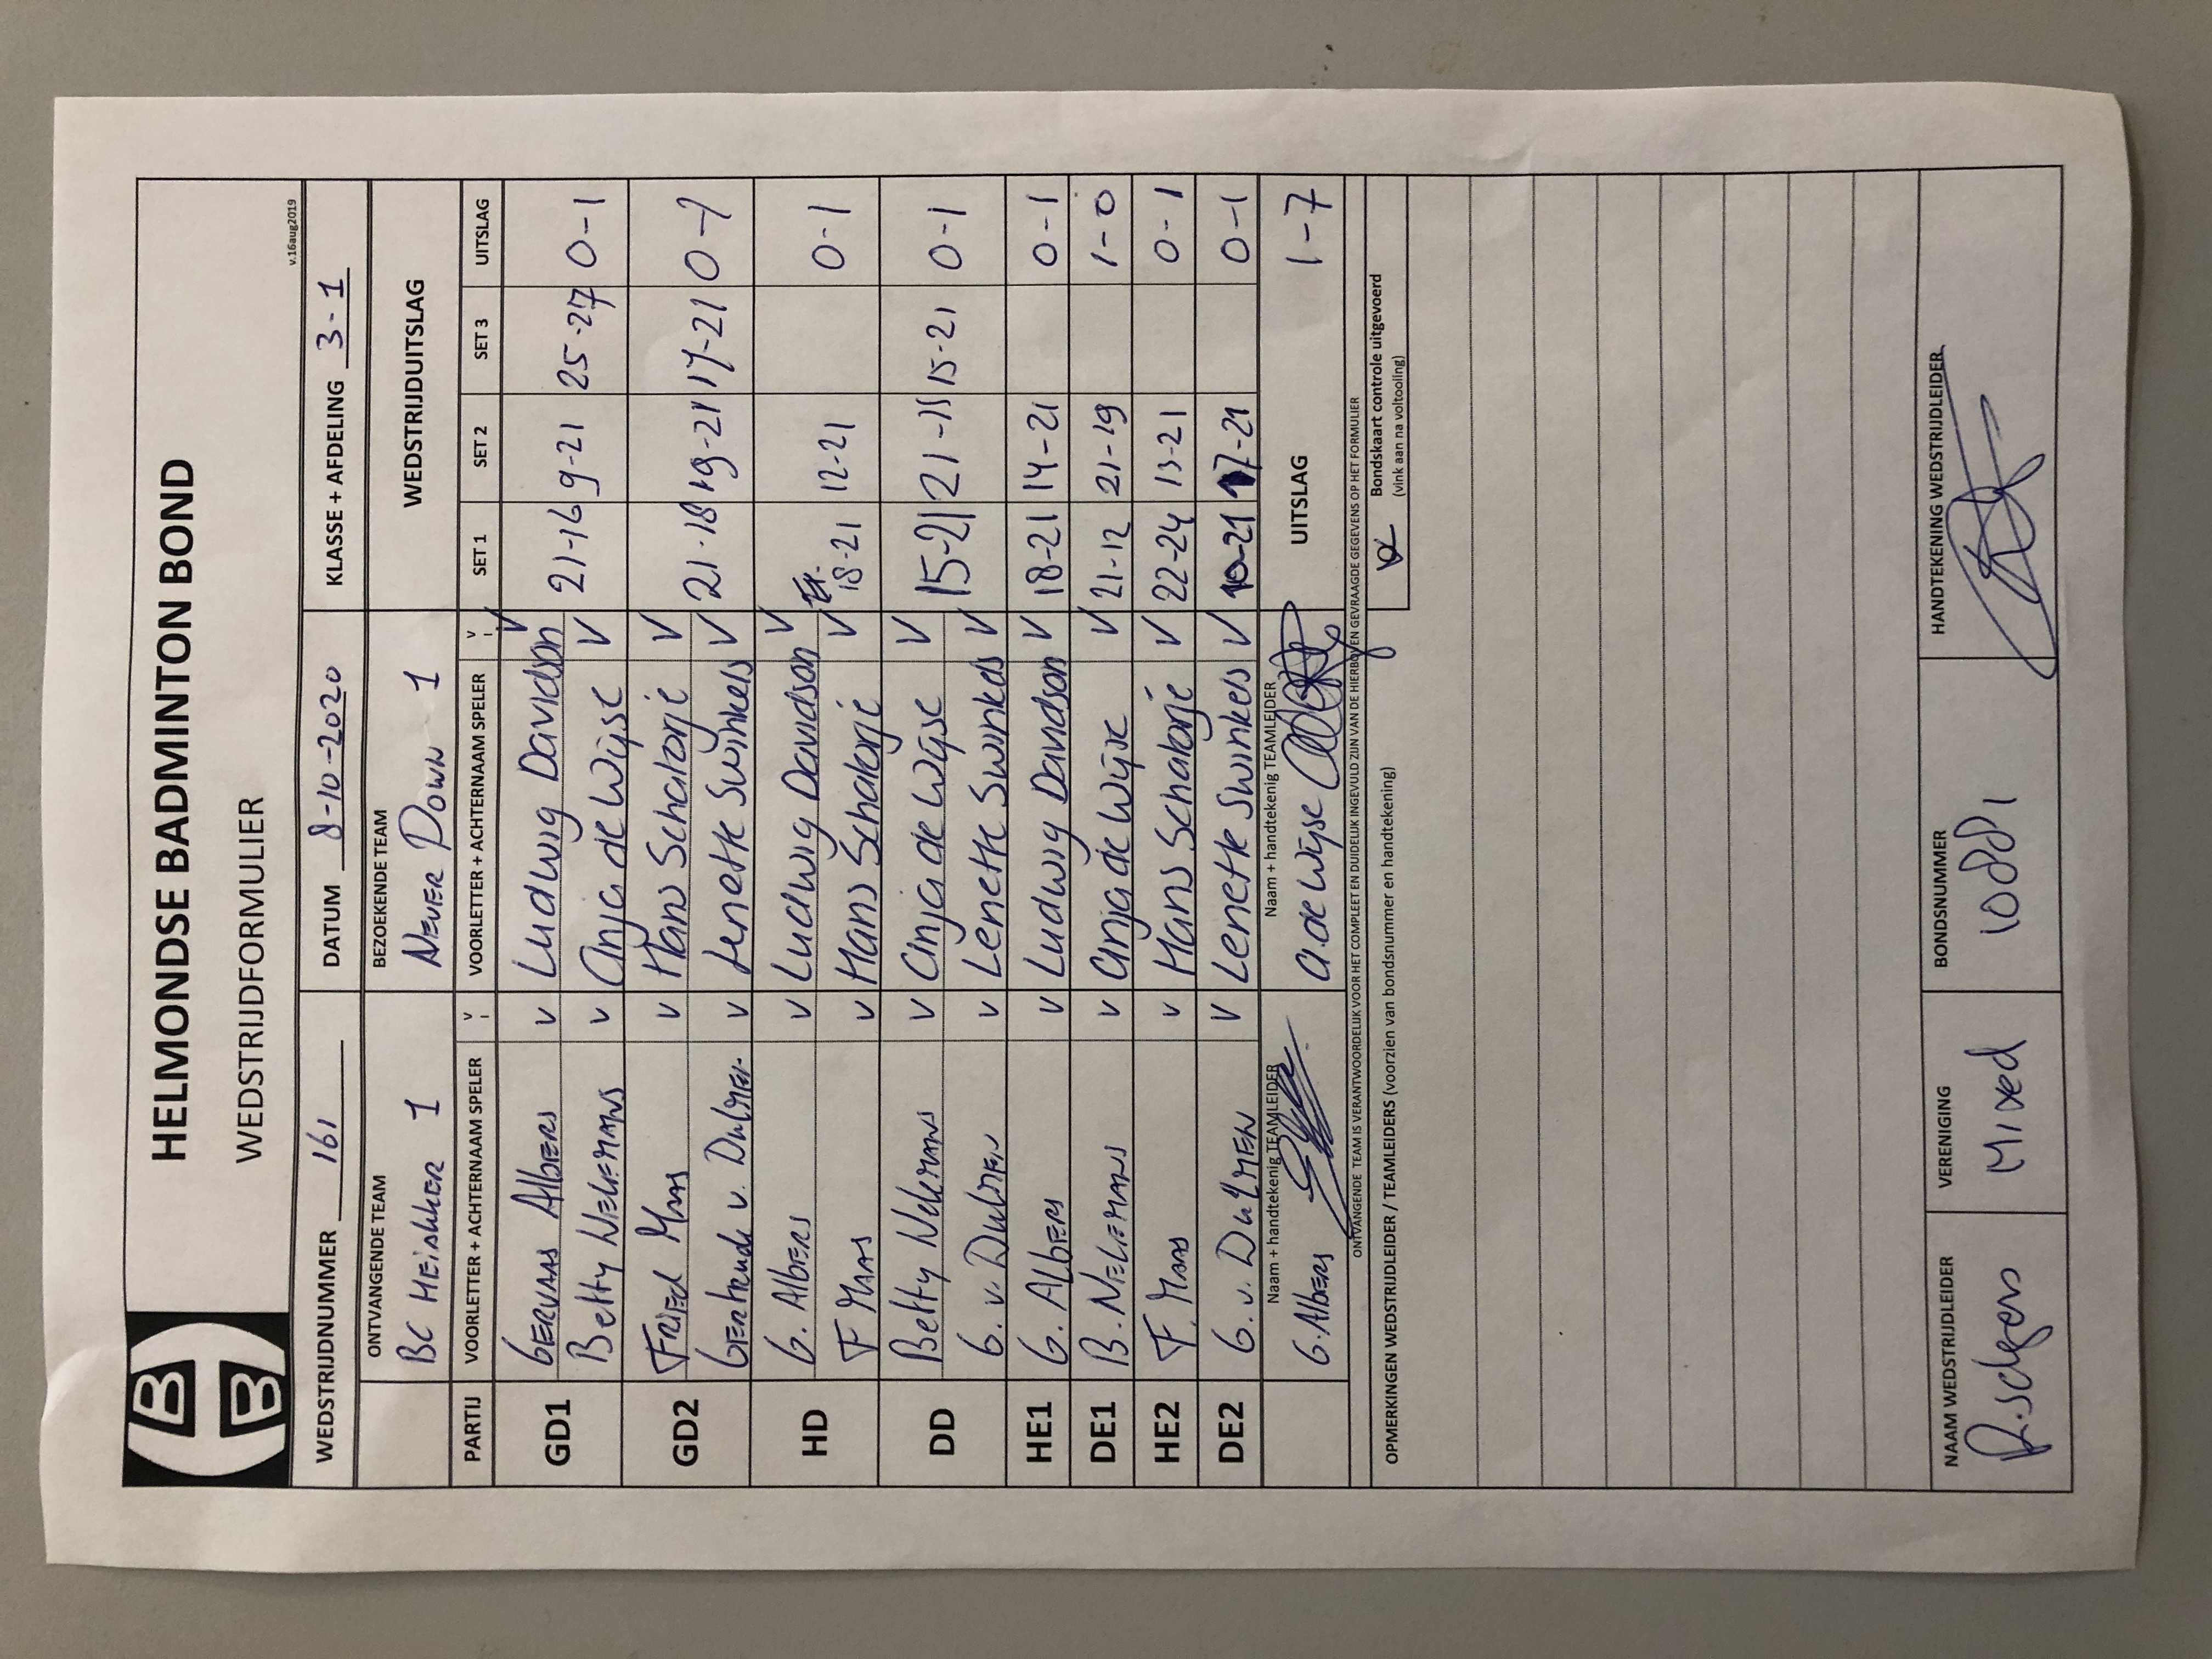 HELMONDSE BADMINTON BOND
WEDSTRIJDFORMULIER
v.16aug2019
WEDSTRIJDNUMMER 161 DATUM 8-10-2020 KLASSE + AFDELING 3-1
ONTVANGENDE TEAM BEZOEKENDE TEAM WEDSTRIJDUITSLAG
BC Meishker 1 Never Down 1
PARTIJ VOORLETTER + ACHTERNAAM SPELER V VOORLETTER + ACHTERNAAM SPELER V SET 1 SET 2 SET 3 UITSLAG
GD1 Gervaas Albers V Ludwig Davidson V 21-16 9-21 25-27 0-1
Betty Nelemans V Anja de Wijse V
GD2 Fried Maas V Hans Schalonjé V 21-18 19-21 17-21 0-1
Gertrude v. Dulmen V Lenette Swinkels V
HD G. Albers V Ludwig Davidson V 18-21 12-21 0-1
F Maas V Hans Schalonjé V
DD Betty Nelemans V Anja de Wijse V 15-21 21-15 15-21 0-1
G. v. Dulmen V Lenette Swinkels V
HE1 G. Albers V Ludwig Davidson V 18-21 14-21 0-1
DE1 B. Nelemans V Anja de Wijse V 21-12 21-19 1-0
HE2 F. Maas V Hans Schalonjé V 22-24 13-21 0-1
DE2 G. v. Dulmen V Lenette Swinkels V 10-21 17-21 0-1
Naam + handtekenig TEAMLEIDER Naam + handtekenig TEAMLEIDER
G. Albers A. de Wijse UITSLAG 1-7
ONTVANGENDE TEAM IS VERANTWOORDELIJK VOOR HET COMPLEET EN DUIDELIJK INGEVULD ZIJN VAN DE HIERBOVEN GEVRAAGDE GEGEVENS OP HET FORMULIER
OPMERKINGEN WEDSTRIJDLEIDER / TEAMLEIDERS (voorzien van bondsnummer en handtekening)
Bondskaart controle uitgevoerd
(vink aan na voltooling)
NAAM WEDSTRIJDLEIDER VERENIGING BONDSNUMMER HANDTEKENING WEDSTRIJDLEIDER
Mixed 10881